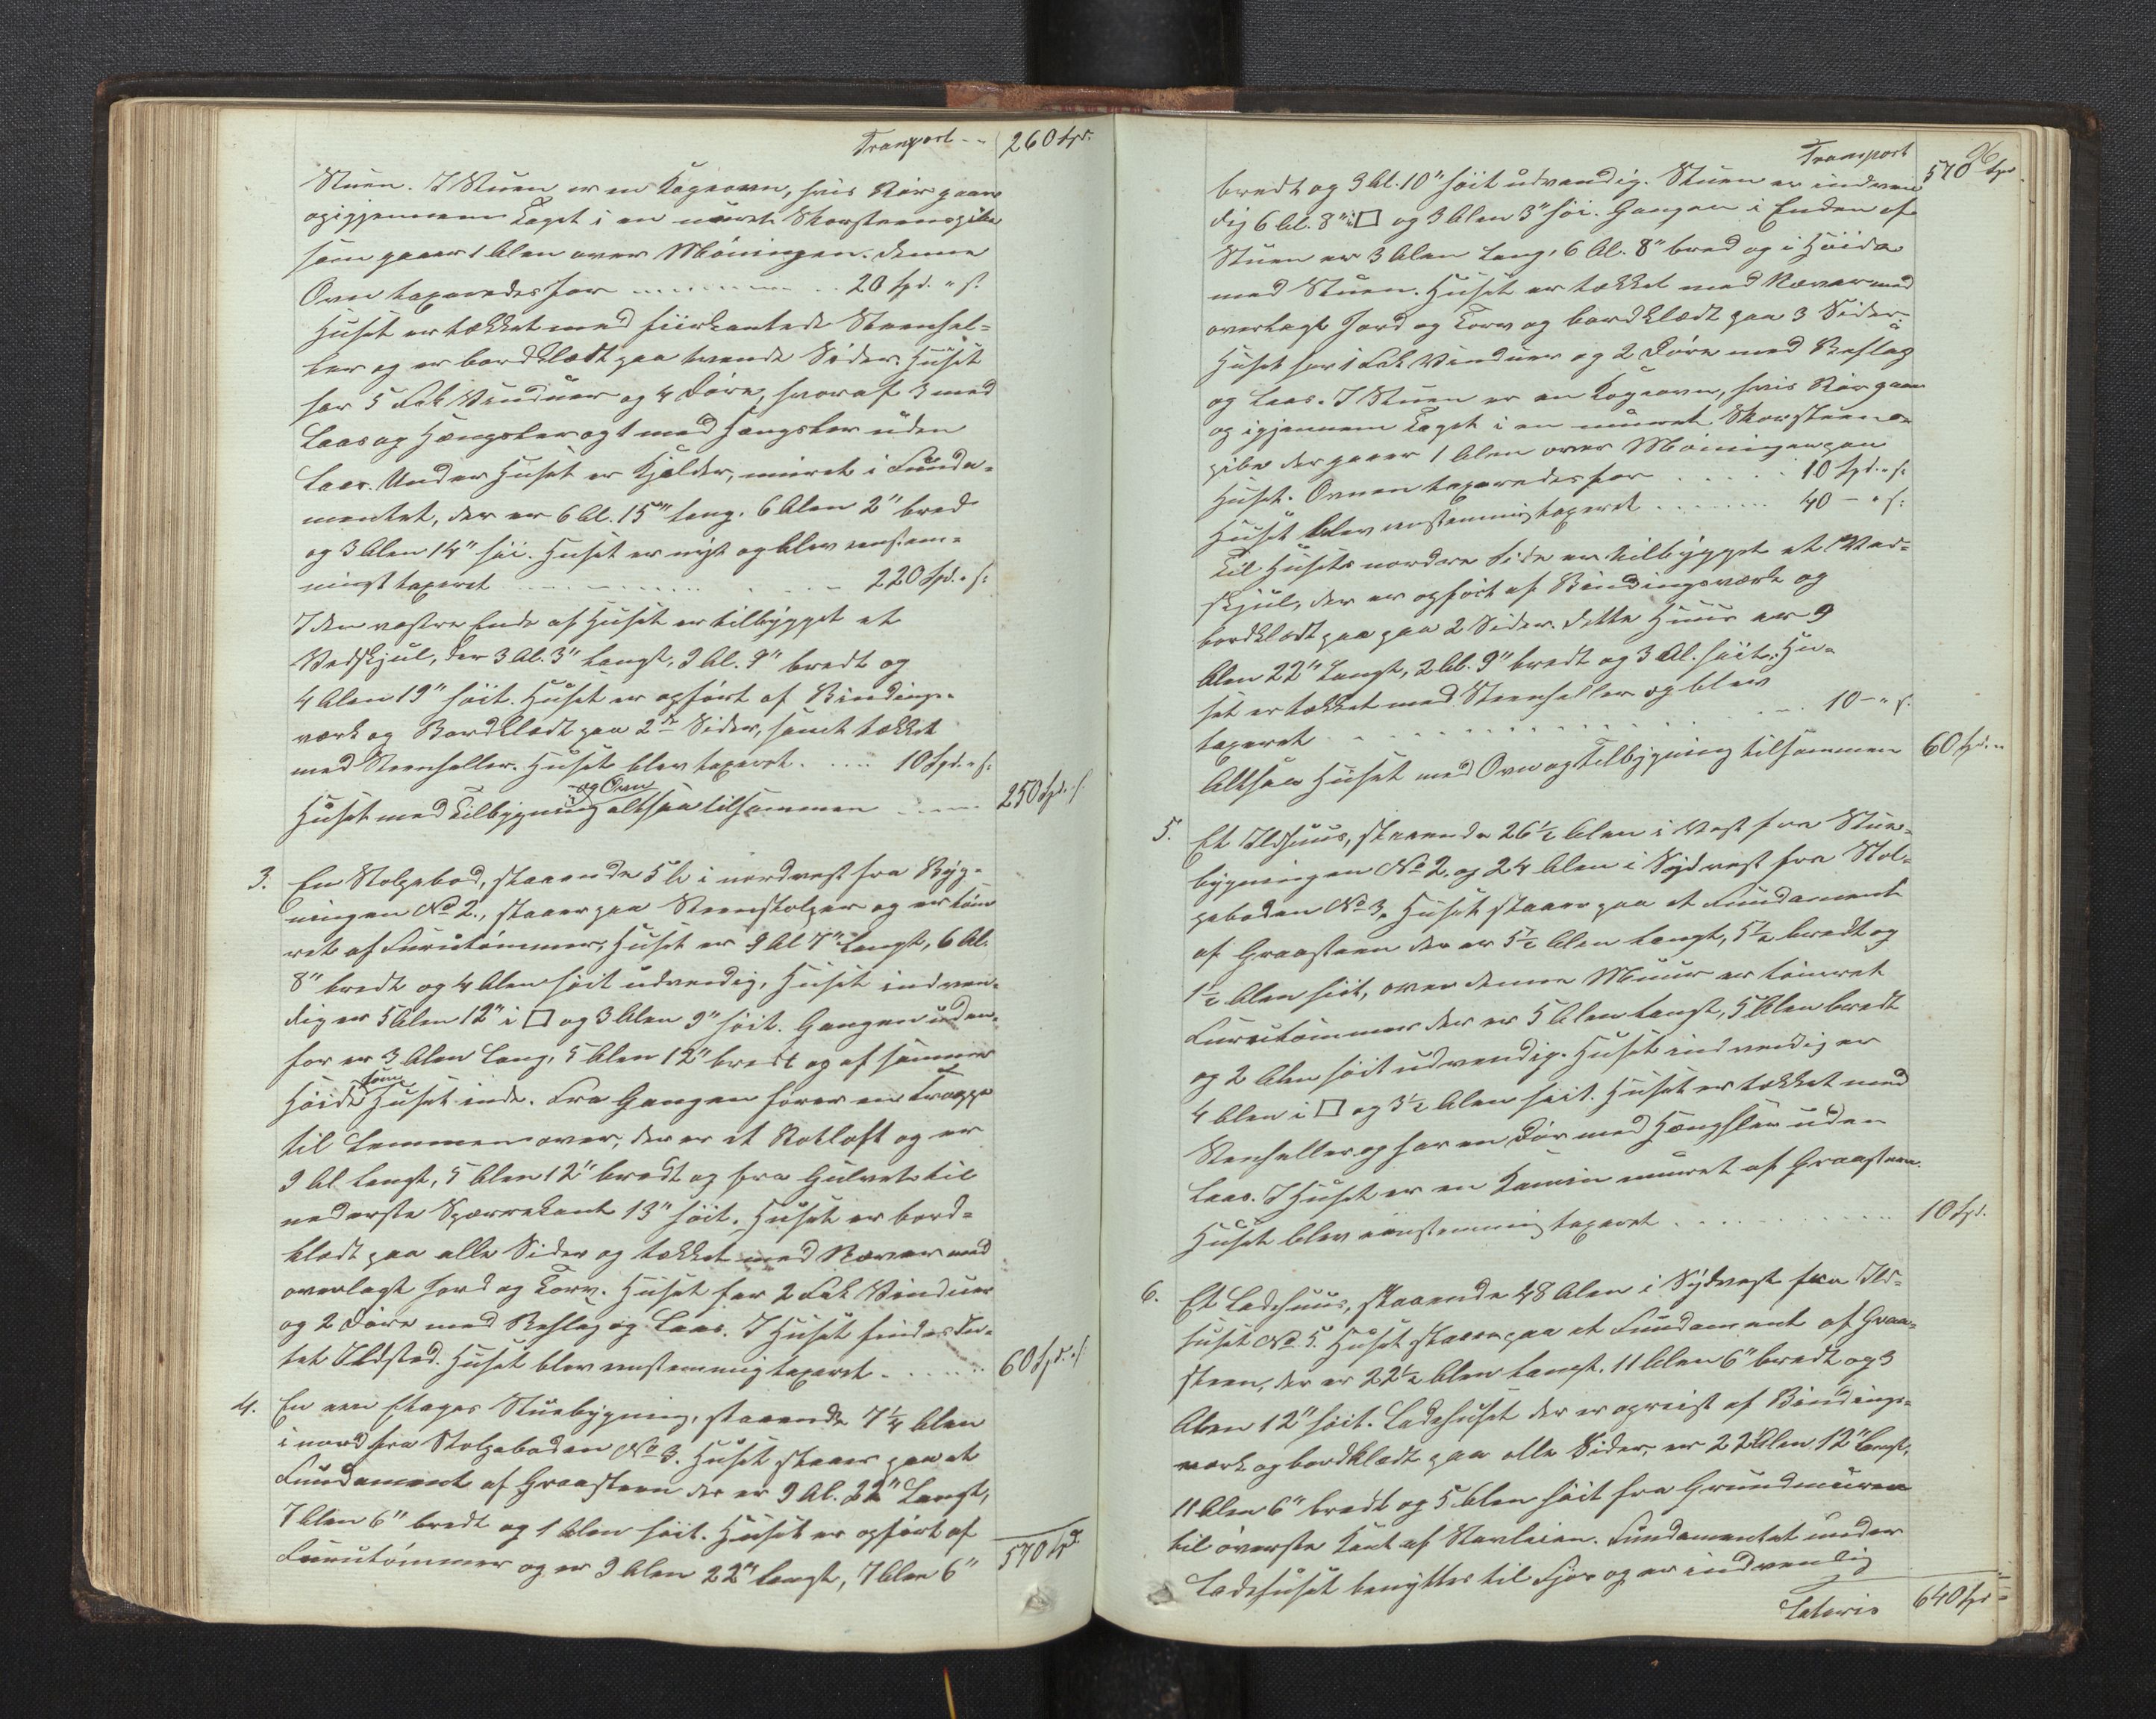 Transport -- 260 Spd.
Stuen. I Stuen er en Kogeovn, hvis Rør gaar
opigjennem Taget i en muret Skorsteenspibe
som gaaer 1 Alen over Møningen. Denne
Ovn taxeredes for ........ 20 Spd. " s.
Huset er tækket med fiirkantede Steenhel-
ler og er bordklædt paa tvende Sider. Huset
har 5 Fak Vinduer og 4 Døre, hvoraf 3 med
Laas og Hængsler og 1 med Hængsler uden
Laas. Under Huset er Kjelder, muret i Funda-
mentet, der er 6 Al. 15" lang, 6 Alen 2" bred
og 3 Alen 14" høi. Huset er nyt og blev eenstem-
migt taxeret ........ 220 Spd. " s:
I den vestre Ende af Huset er tilbygget et
Vedskjul, der 3 Al. 3" langt, 9 Al. 9" bredt og
4 Alen 19" høit. Huset er opført af Bindings-
værk og Bordklædt paa 2de Sider, samt tækket
med Steenheller. Huset blev taxeret ..... 10 Spd. " s:
og Ovn
Huset med Tilbygning altsaa tilsammen ..... 250 Spd. " s
3. En Stolpebod, staaende 5 Al i nordvest fra Byg-
ningen No 2., staaer paa Steenstolper og er tøm
ret af Furutømmer, Huset er 9 Al 7" langt, 6 Al.
8" bredt og 4 Alen høit udvendig, Huset indven-
dig er 5 Alen 12" i □ og 3 Alen 9" høit. Gangen uden-
for er 3 Alen lang, 5 Alen 12" bredt og af samme
som
Høide Huset inde. Fra Gangen fører en Trappe
til Lemmen over, der er et Rotloft og er
9 Al langt, 5 Alen 12" bredt og fra Gulvet til
nederste Sperrekant 13" høit. Huset er bord-
klædt paa alle Sider og tækket med Næver med
overlagt Jord og Torv. Huset har 2 Fak Vinduer
og 2 Døre med Beslag og Laas. I Huset findes In-
tet Ildsted. Huset blev enstemmig taxeret ...... 60 Spd. " s
4. En een Etages Stuebygning, staaende 7 1/4 Alen
i nord fra Stolpeboden No 3. Huset staaer paa et
Fundament af Graasteen der er 9 Al. 22" Langt,
7 Alen 6" bredt og 1 Alen høit. Huset er opført af
Furutømmer og er 9 Alen 22" langt, 7 Alen 6" 570 Spd
96
Transport 570 Spd
bredt og 3 Al. 10" høit udvendig. Stuen er indven
dig 6 Al. 8" i □ og 3 Alen 3" høi. Gangen i Enden af
Stuen er 3 Alen lang, 6 Al. 8" bred og i Høide
med Stuen. Huset er tækket med Næver med
overlagt Jord og Torv og bordklædt paa 3 Sider.
Huset har 1 Fak Vinduer og 2 Døre med Beslag
og Laas. I Stuen er en Kogeovn, hvis Rør gaar
op igjennem Taget i en muret Skorsteens-
pibe der gaaer 1 Alen over Møningen paa
Huset. Ovnen taxeredes for ..... 10 Spd. " s:
Huset blev enstemmig taxeret ........ 40 – " s:
Til Husets nordre Side er tilbygget et Ved-
skjul, der er opført af Bindingsværk og
bordklædt paa paa 2 Sider. Dette Huus er 9
Alen 22" Langt, 2 Al. 9" bredt og 3 Al. høit, Hu-
set er tækket med Steenheller og blev
taxeret ........ 10 – " s.
Altsaa Huset med Ovn og Tilbygning tilsammen 60 Spd. "
5. Et Ildhuus, staaende 26 1/2 Alen i Vest fra Stue-
bygningen No 2. og 24 Alen i Sydvest fra Stol-
peboden No 3. Huset staaer paa et Fundament
af Graasteen der er 5 1/2 Alen langt, 5 1/2 bredt og
1 1/2 Alen høit, over denne Muur er tømret
Furutømmer der er 5 Alen langt, 5 Alen bredt
og 2 Alen høit udvendig. Huset indvendig er
4 Alen i □ og 3 1/2 Alen høit. Huset er tækket med
Steenheller og har en Dør med Hængsler uden
Laas. I Huset er en Kamin muret af Graasteen.
Huset blev eenstemmig taxeret ........ 10 Spd.
6. Et Ladehuus, staaende 48 Alen i Sydvest fra Ild-
huset No 5. Huset staaer paa et Fundament af Graa-
steen, der er 22 1/2 Alen langt, 11 Alen 6" bredt og 3
Alen 12" høit. Ladehuset der er opreist af Bindings-
værk og bordklædt paa alle Sider, er 22 Alen 12" langt,
11 Alen 6" bredt og 5 Alen høit fra Grundmuren
til øverste Kant af Stavleien. Fundamentet under
Ladehuset benyttes til Fjøs og er indvendig
Lateris 640 Spd